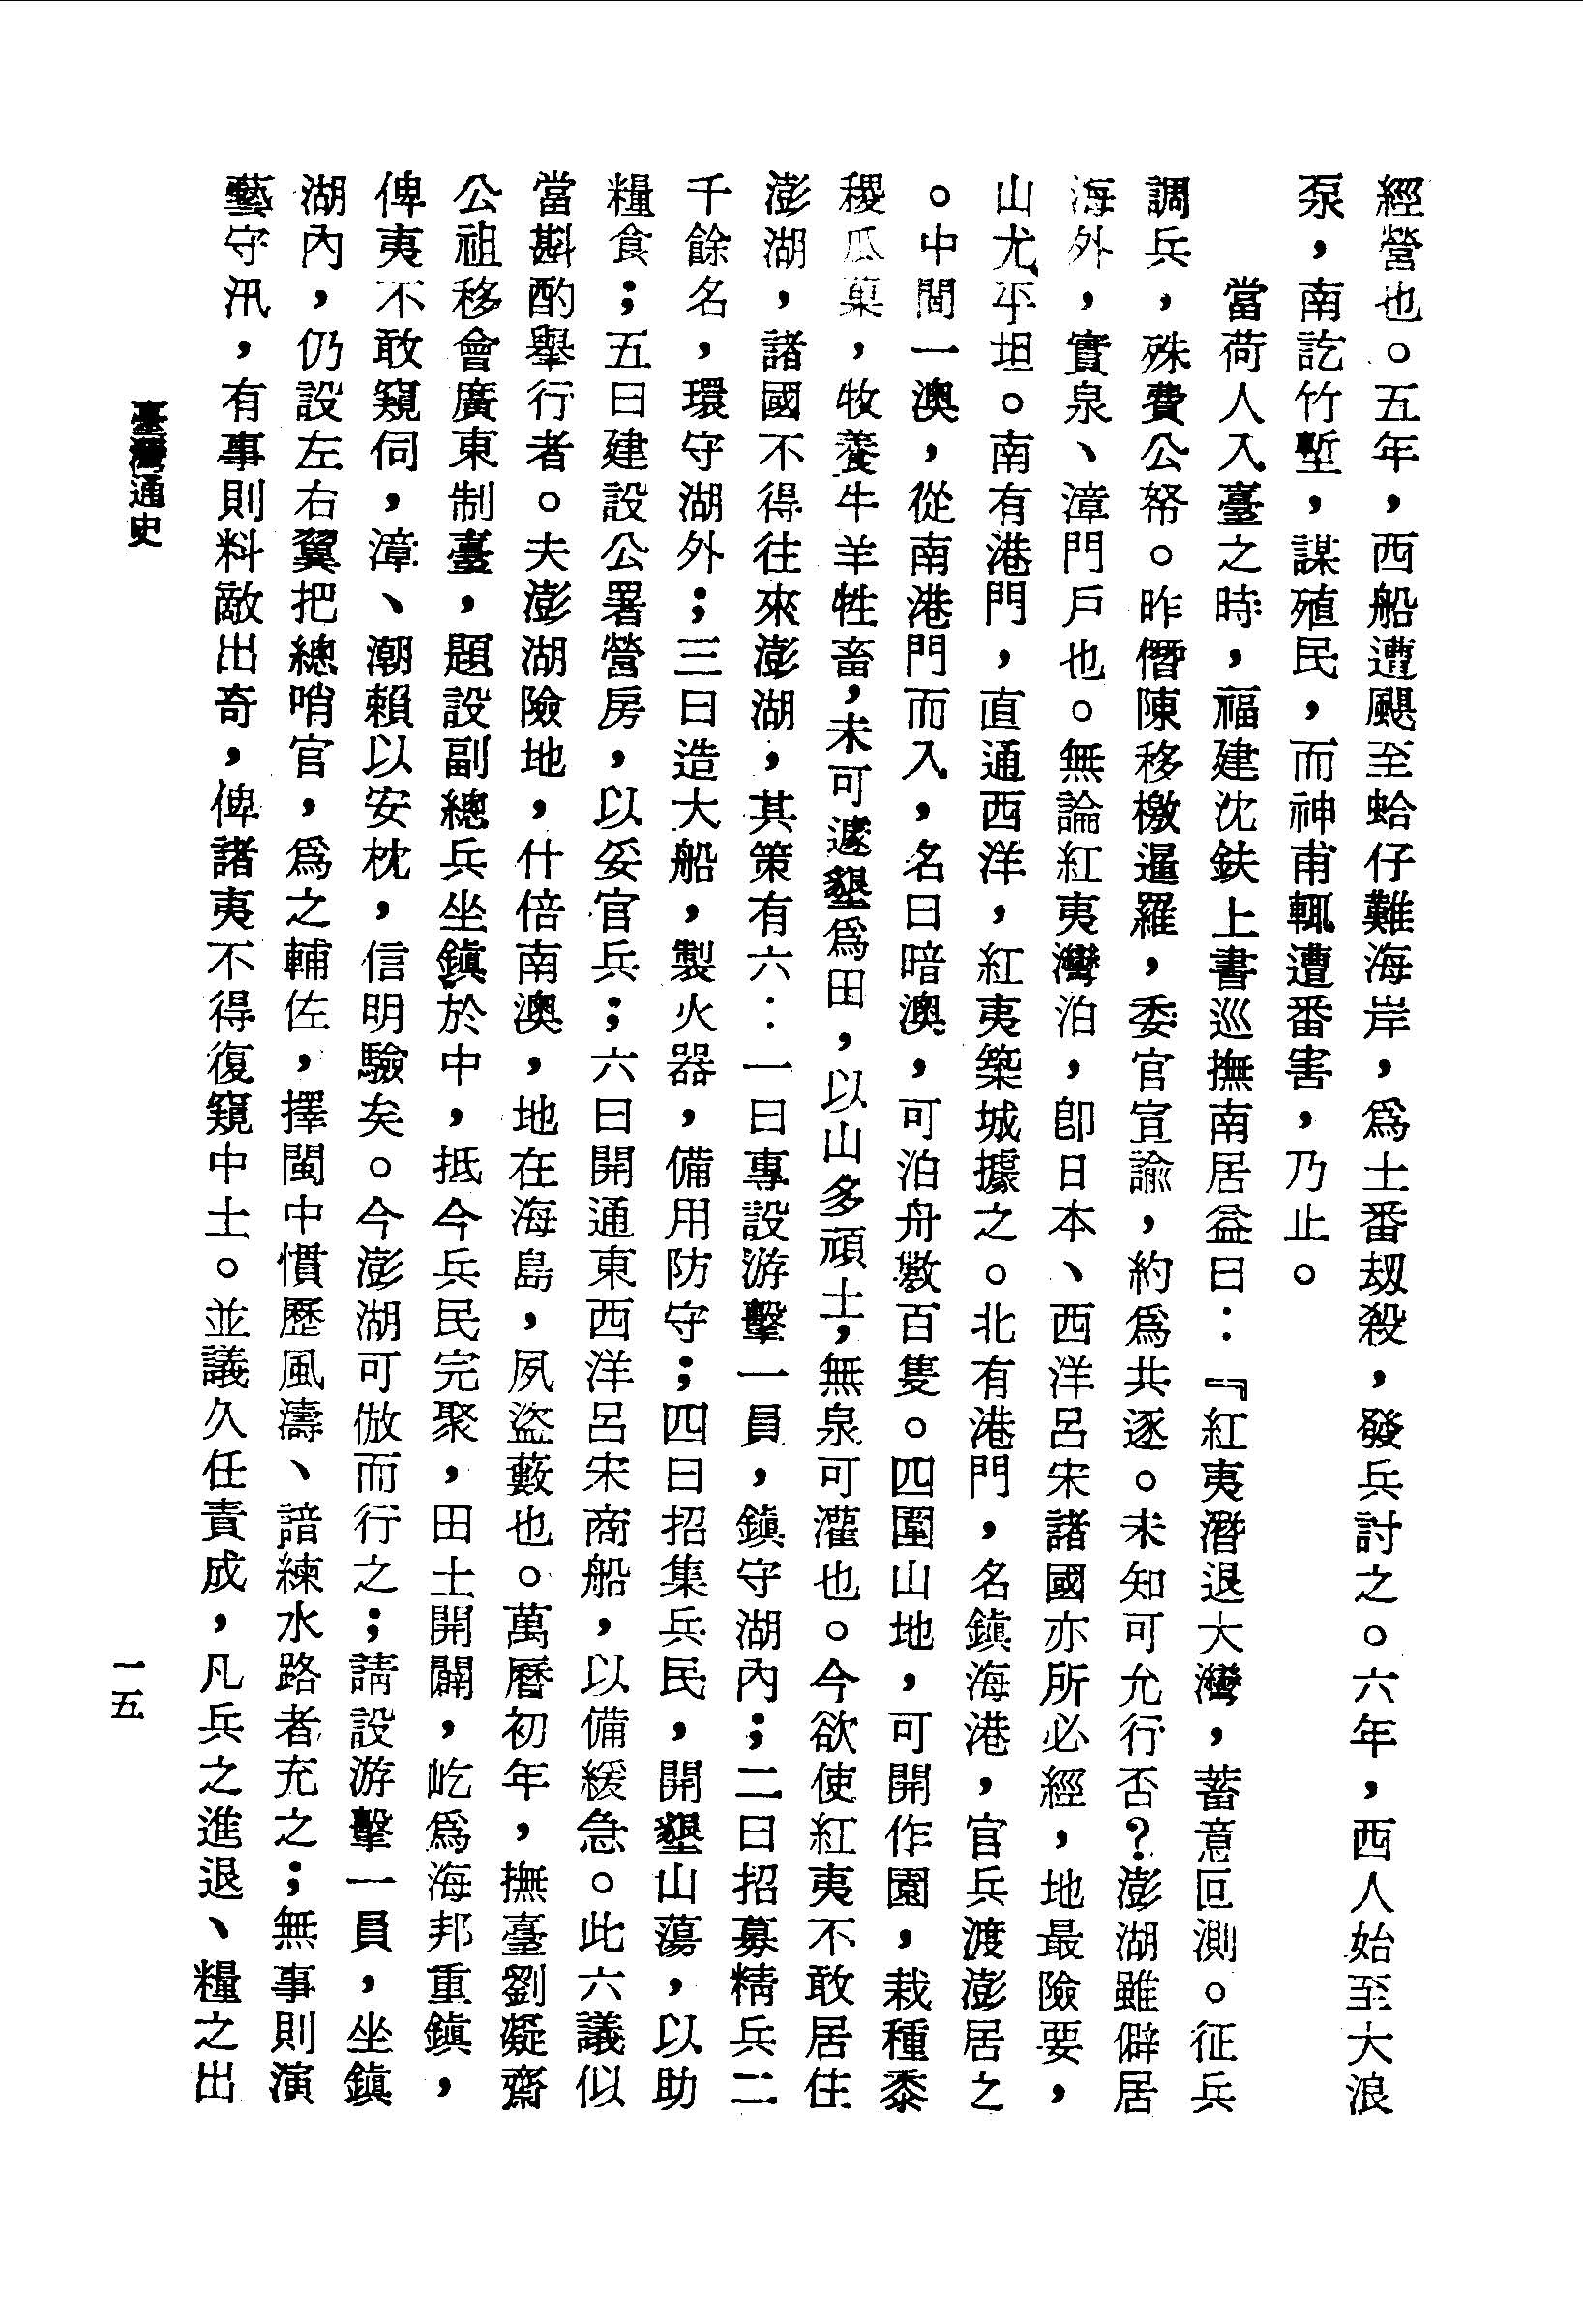 經營也。五年，西船遭颶至蛤仔難海岸，爲土番刼殺，發兵討之。六年，西人始至大浪
泵，南訖竹塹，謀殖民，而神甫輒遭番害，乃止。
當荷人入臺之時，福建沈鈇上書巡撫南居益曰：『紅夷潛退大灣，蓄意叵測。征兵
調兵，殊費公帑。昨僭陳移檄暹羅，委官宣諭，約爲共逐。未知可允行否？澎湖雖僻居
海外，實泉、漳門戶也。無論紅夷灣泊，卽日本、西洋呂宋諸國亦所必經，地最險要，
山尤平坦。南有港門，直通西洋，紅夷築城據之。北有港門，名鎭海港，官兵渡澎居之
。中間一澳，從南港門而入，名曰暗澳，可泊舟數百隻。四圍山地，可開作園，栽種黍
稷瓜菓，牧養牛羊牲畜，未可遽墾爲田，以山多頑土，無泉可灌也。今欲使紅夷不敢居住
澎湖，諸國不得往來澎湖，其策有六：一曰專設游擊一員，鎭守湖內；二曰招募精兵二
千餘名，環守湖外；三曰造大船，製火器，備用防守；四曰招集兵民，開墾山蕩，以助
糧食；五曰建設公署營房，以妥官兵；六曰開通東西洋呂宋商船，以備緩急。此六議似
當斟酌舉行者。夫澎湖險地，什倍南澳，地在海島，夙盜藪也。萬曆初年，撫臺劉凝齋
公祖移會廣東制臺，題設副總兵坐鎭於中，抵今兵民完聚，田土開闢，屹爲海邦重鎭，
俾夷不敢窺伺，漳、潮賴以安枕，信明驗矣。今澎湖可倣而行之；請設游擊一員，坐鎭
湖內，仍設左右翼把總哨官，爲之輔佐，擇閩中慣歷風濤、諳練水路者充之；無事則演
藝守汛，有事則料敵出奇，俾諸夷不得復窺中土。並議久任責成，凡兵之進退、糧之出
臺灣通史
一五